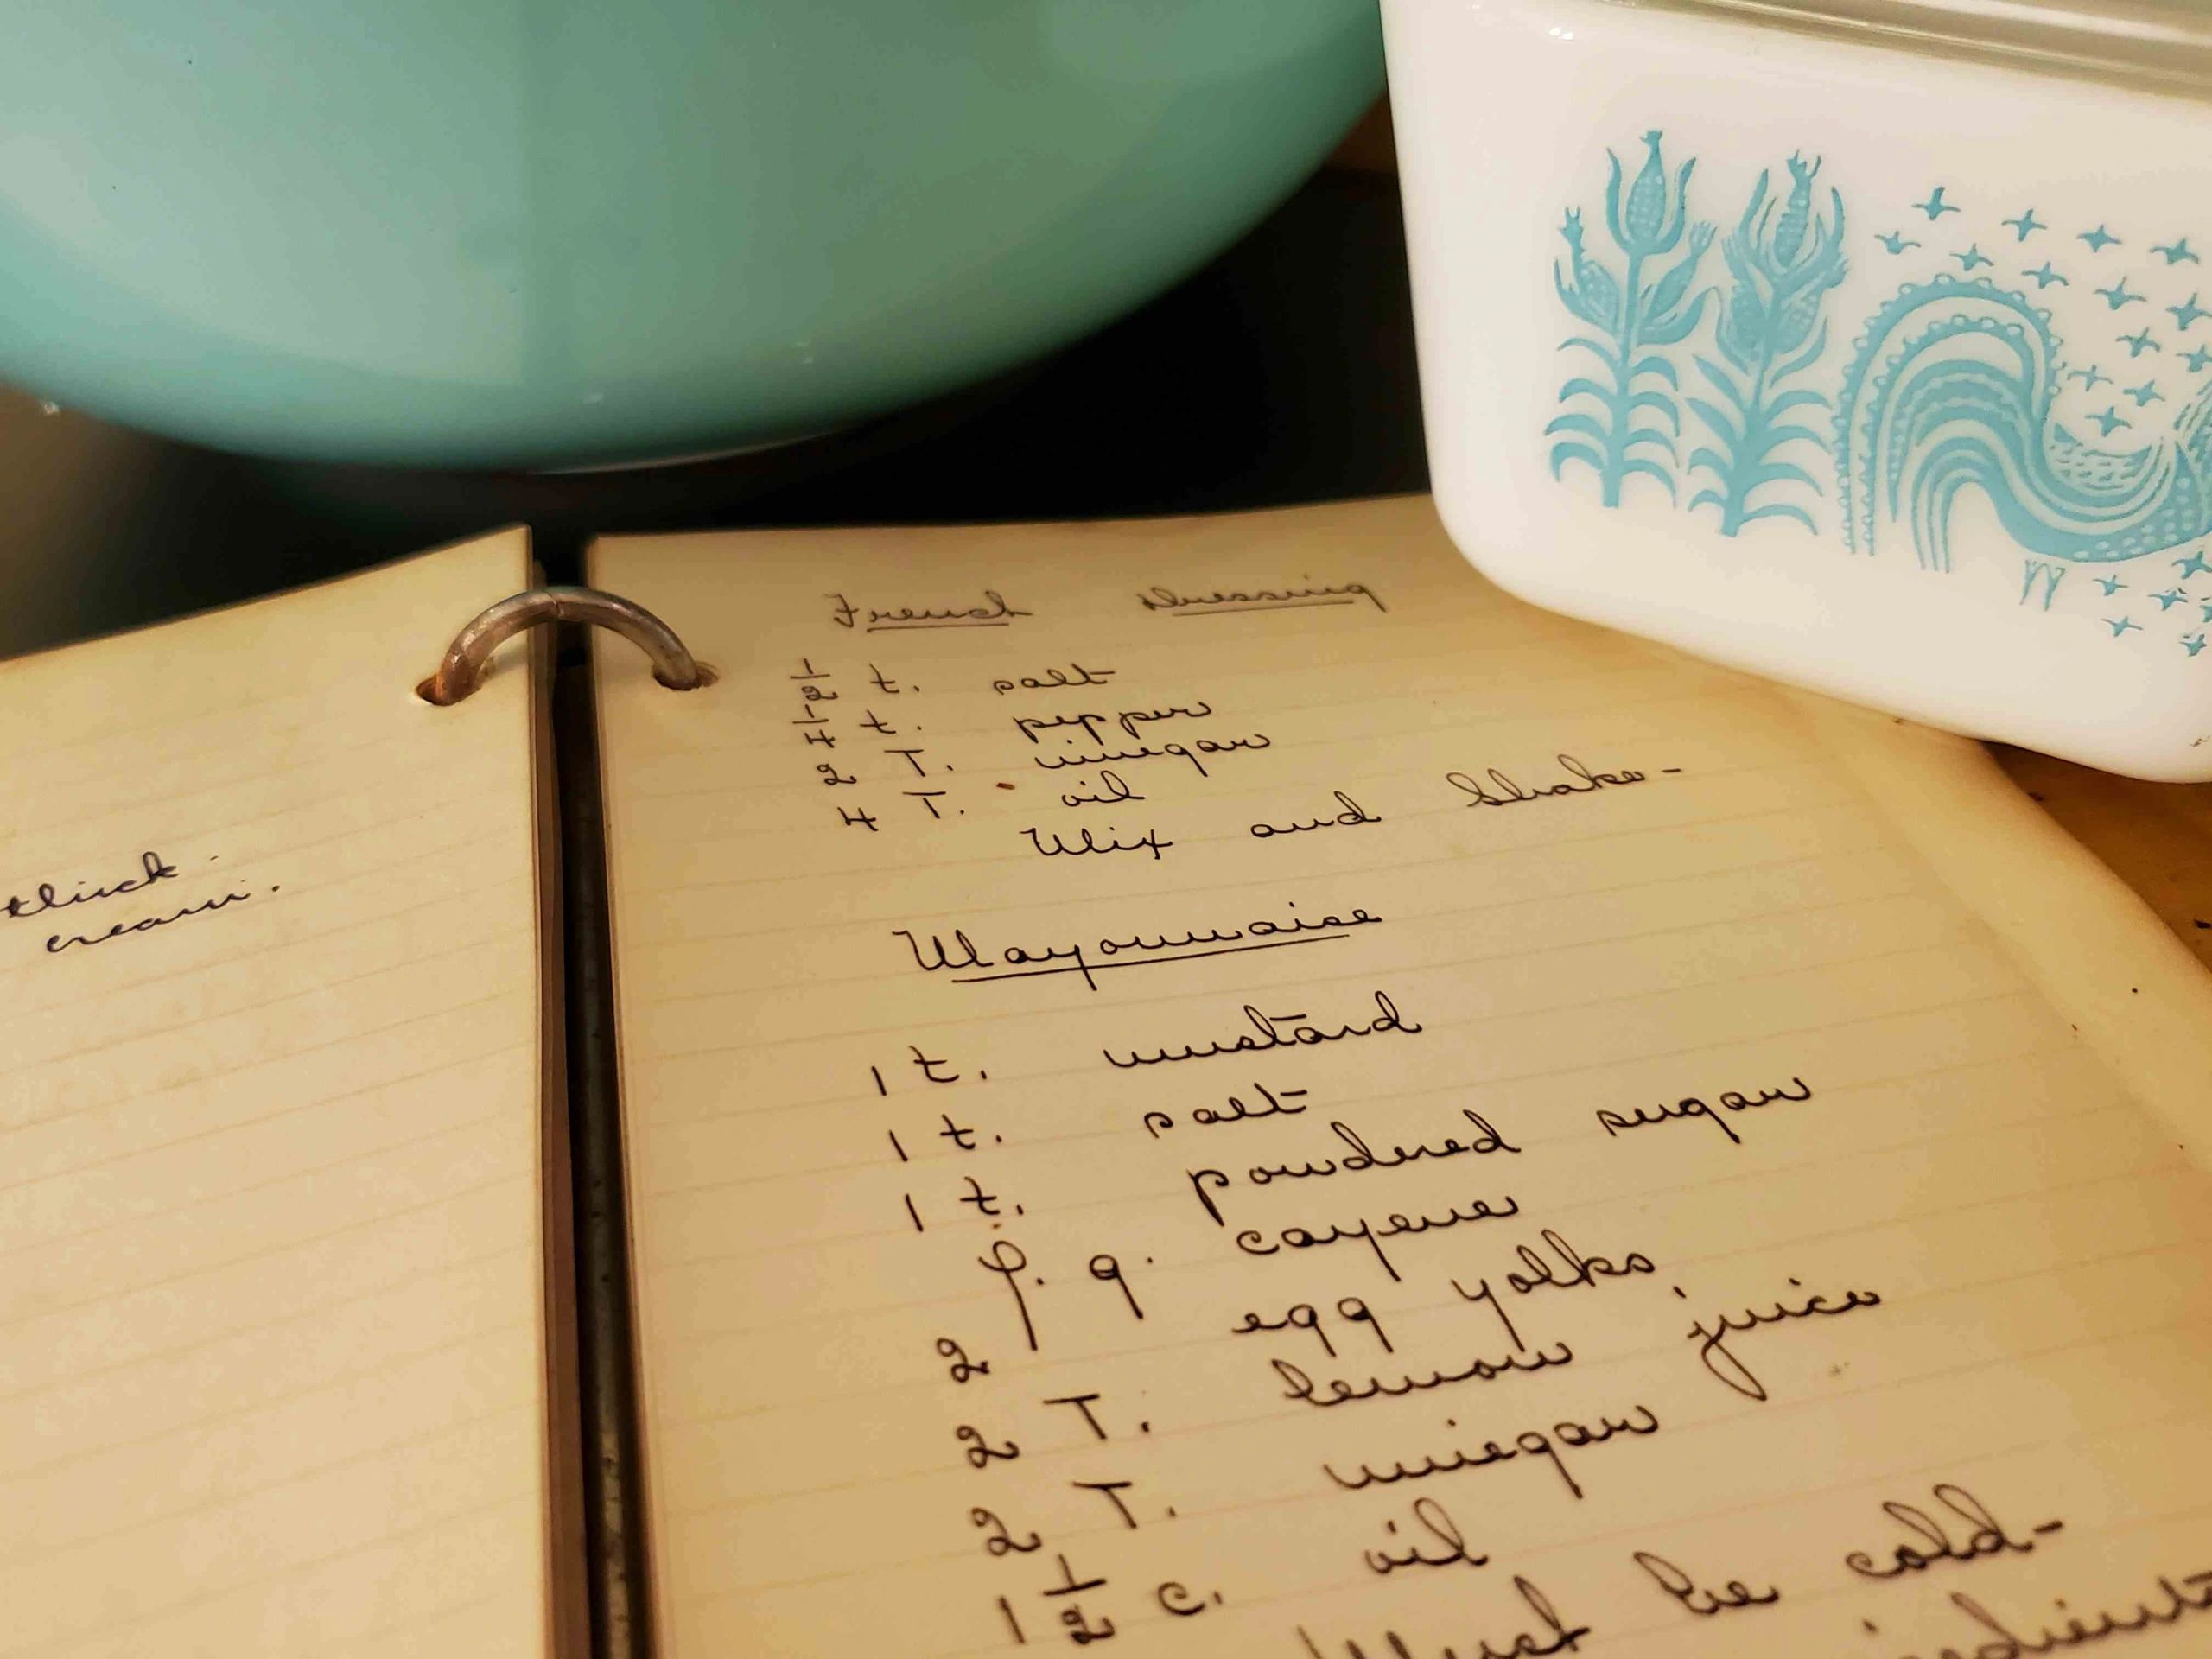 thick
cream.
French Dressing
1/2 t. salt
1/4 t. pepper
2 T. vinegar
4 T. oil
Mix and Shake-
Mayonnaise
1 t. mustard
1 t. salt
1 t. powdered sugar
f. g. cayenne
2 egg yolks
2 T. lemon juice
2 T. vinegar
1 1/2 c. oil
Must be cold-